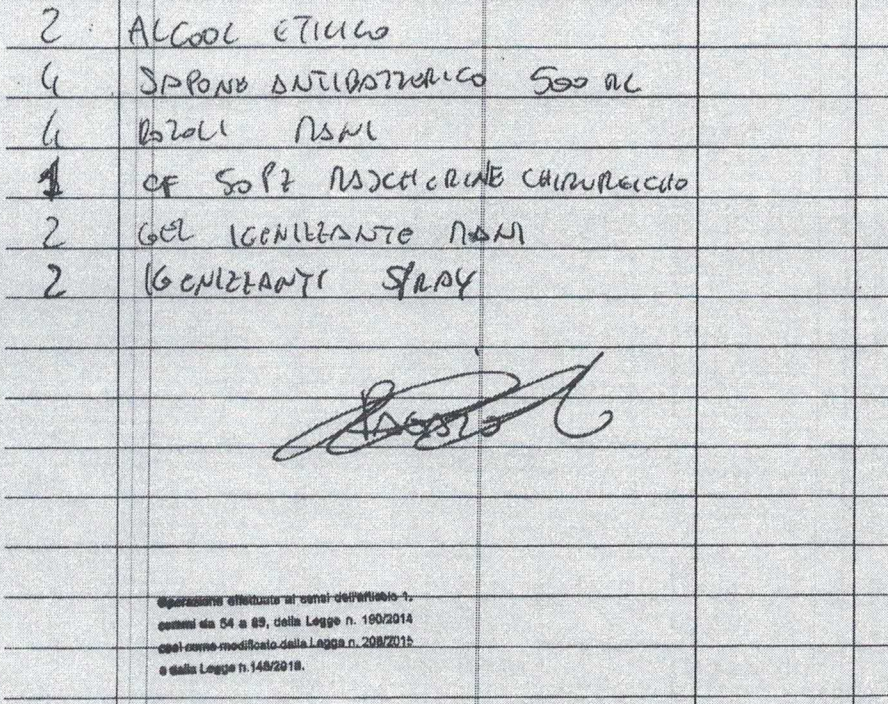 2 ALCOOL ETILICO
4 SAPONE ANTIBATTERICO 500 ML
4 ROTOLI MANI
1 CF 50 PZ MASCHERINE CHIRURGICHE
2 GEL IGENIZZANTE MANI
2 IGENIZZANTI SPRAY
PAGATO
Operazione effettuata ai sensi dell'articolo 1,
commi da 54 a 89, della Legge n. 190/2014
così come modificato dalla Legge n. 208/2015
e dalla Legge n.145/2018.